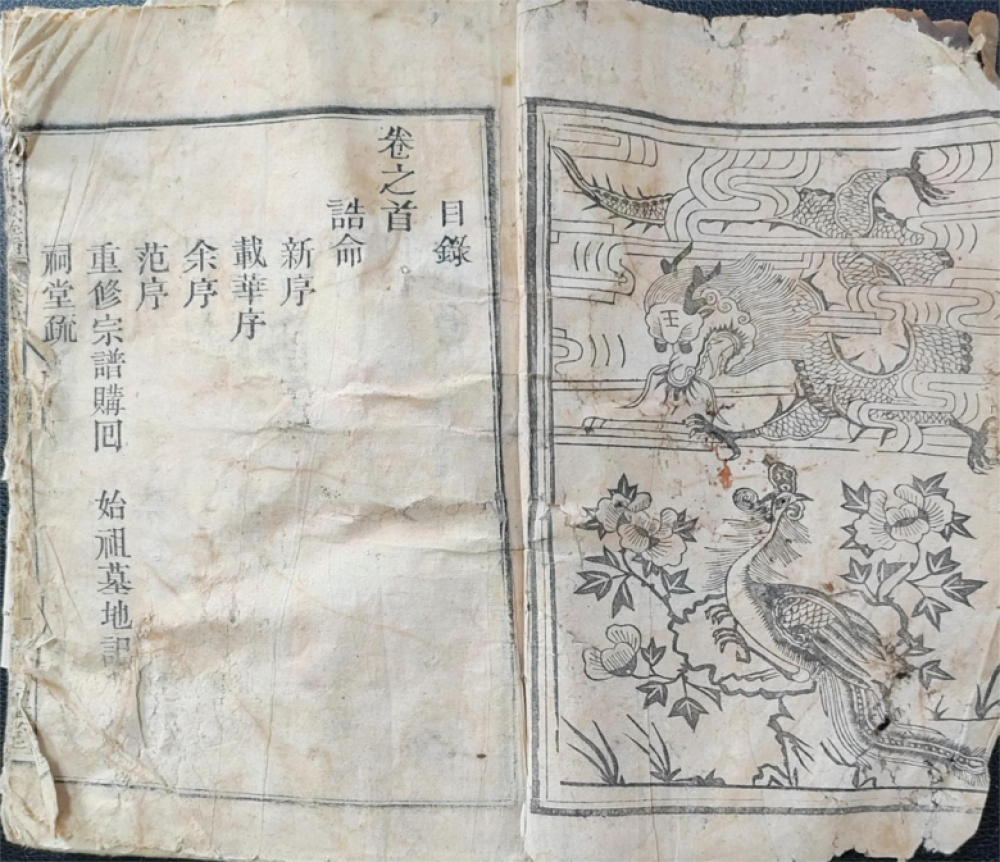 目錄
卷之首
誥命
新序
載華序
余序
范序
重修宗譜購回 始祖墓地記
祠堂疏
王